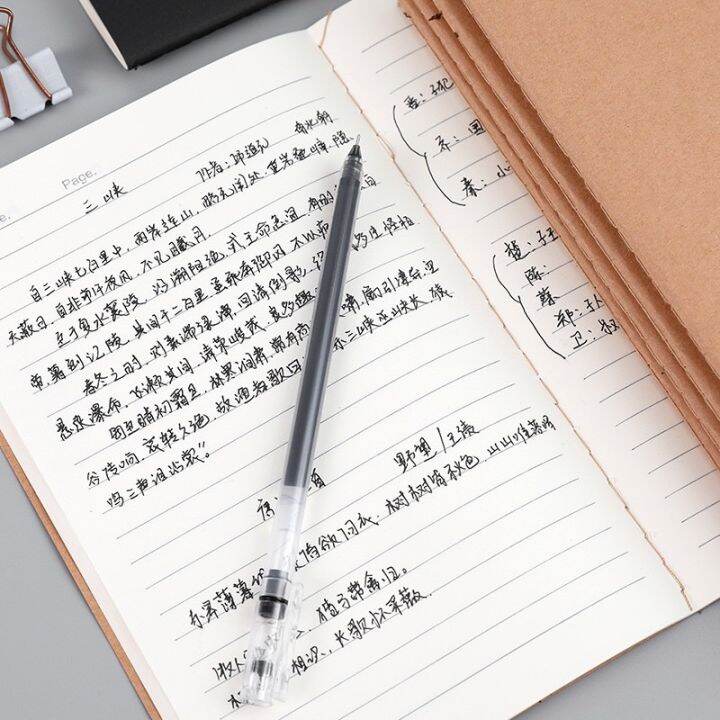 Page.
三峡 作者:郦道元 南北朝
自三峡七百里中,两岸连山,略无阙处,重岩叠嶂,隐
天蔽日,自非亭午夜分,不见曦月。
至于夏水襄陵,沿溯阻绝,或王命急宣,有时 白
帝暮到江陵,其间千二百里,虽乘奔御风,不以疾
春冬之时,则素湍绿潭,回清倒影, 多生怪柏
悬泉瀑布,飞漱其间,清荣峻茂,良多趣
晴初霜旦,林寒涧肃,常有高 啸,属引凄异,空
谷传响,哀转久绝,故渔者歌曰: 东三峡巫峡长,猿
鸣三声泪沾裳。”
唐 野望/王绩
东皋薄暮 徙倚欲何依,树树皆秋色,山山唯落晖
牧人 ,猎马带禽归。
相识,长歌怀采薇。
晋:子犯
齐:国
秦:小
楚:子玉
陈:
蔡:
郑:
卫: